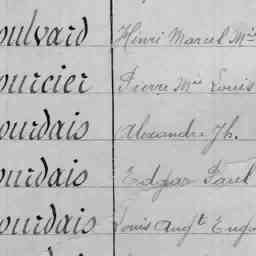 oulvard Henri Marcel Mie
ourcier Pierre Mie Louis
ourdais Alexandre Jh.
ourdais Edgar Paul
ourdais Louis Augte Eug